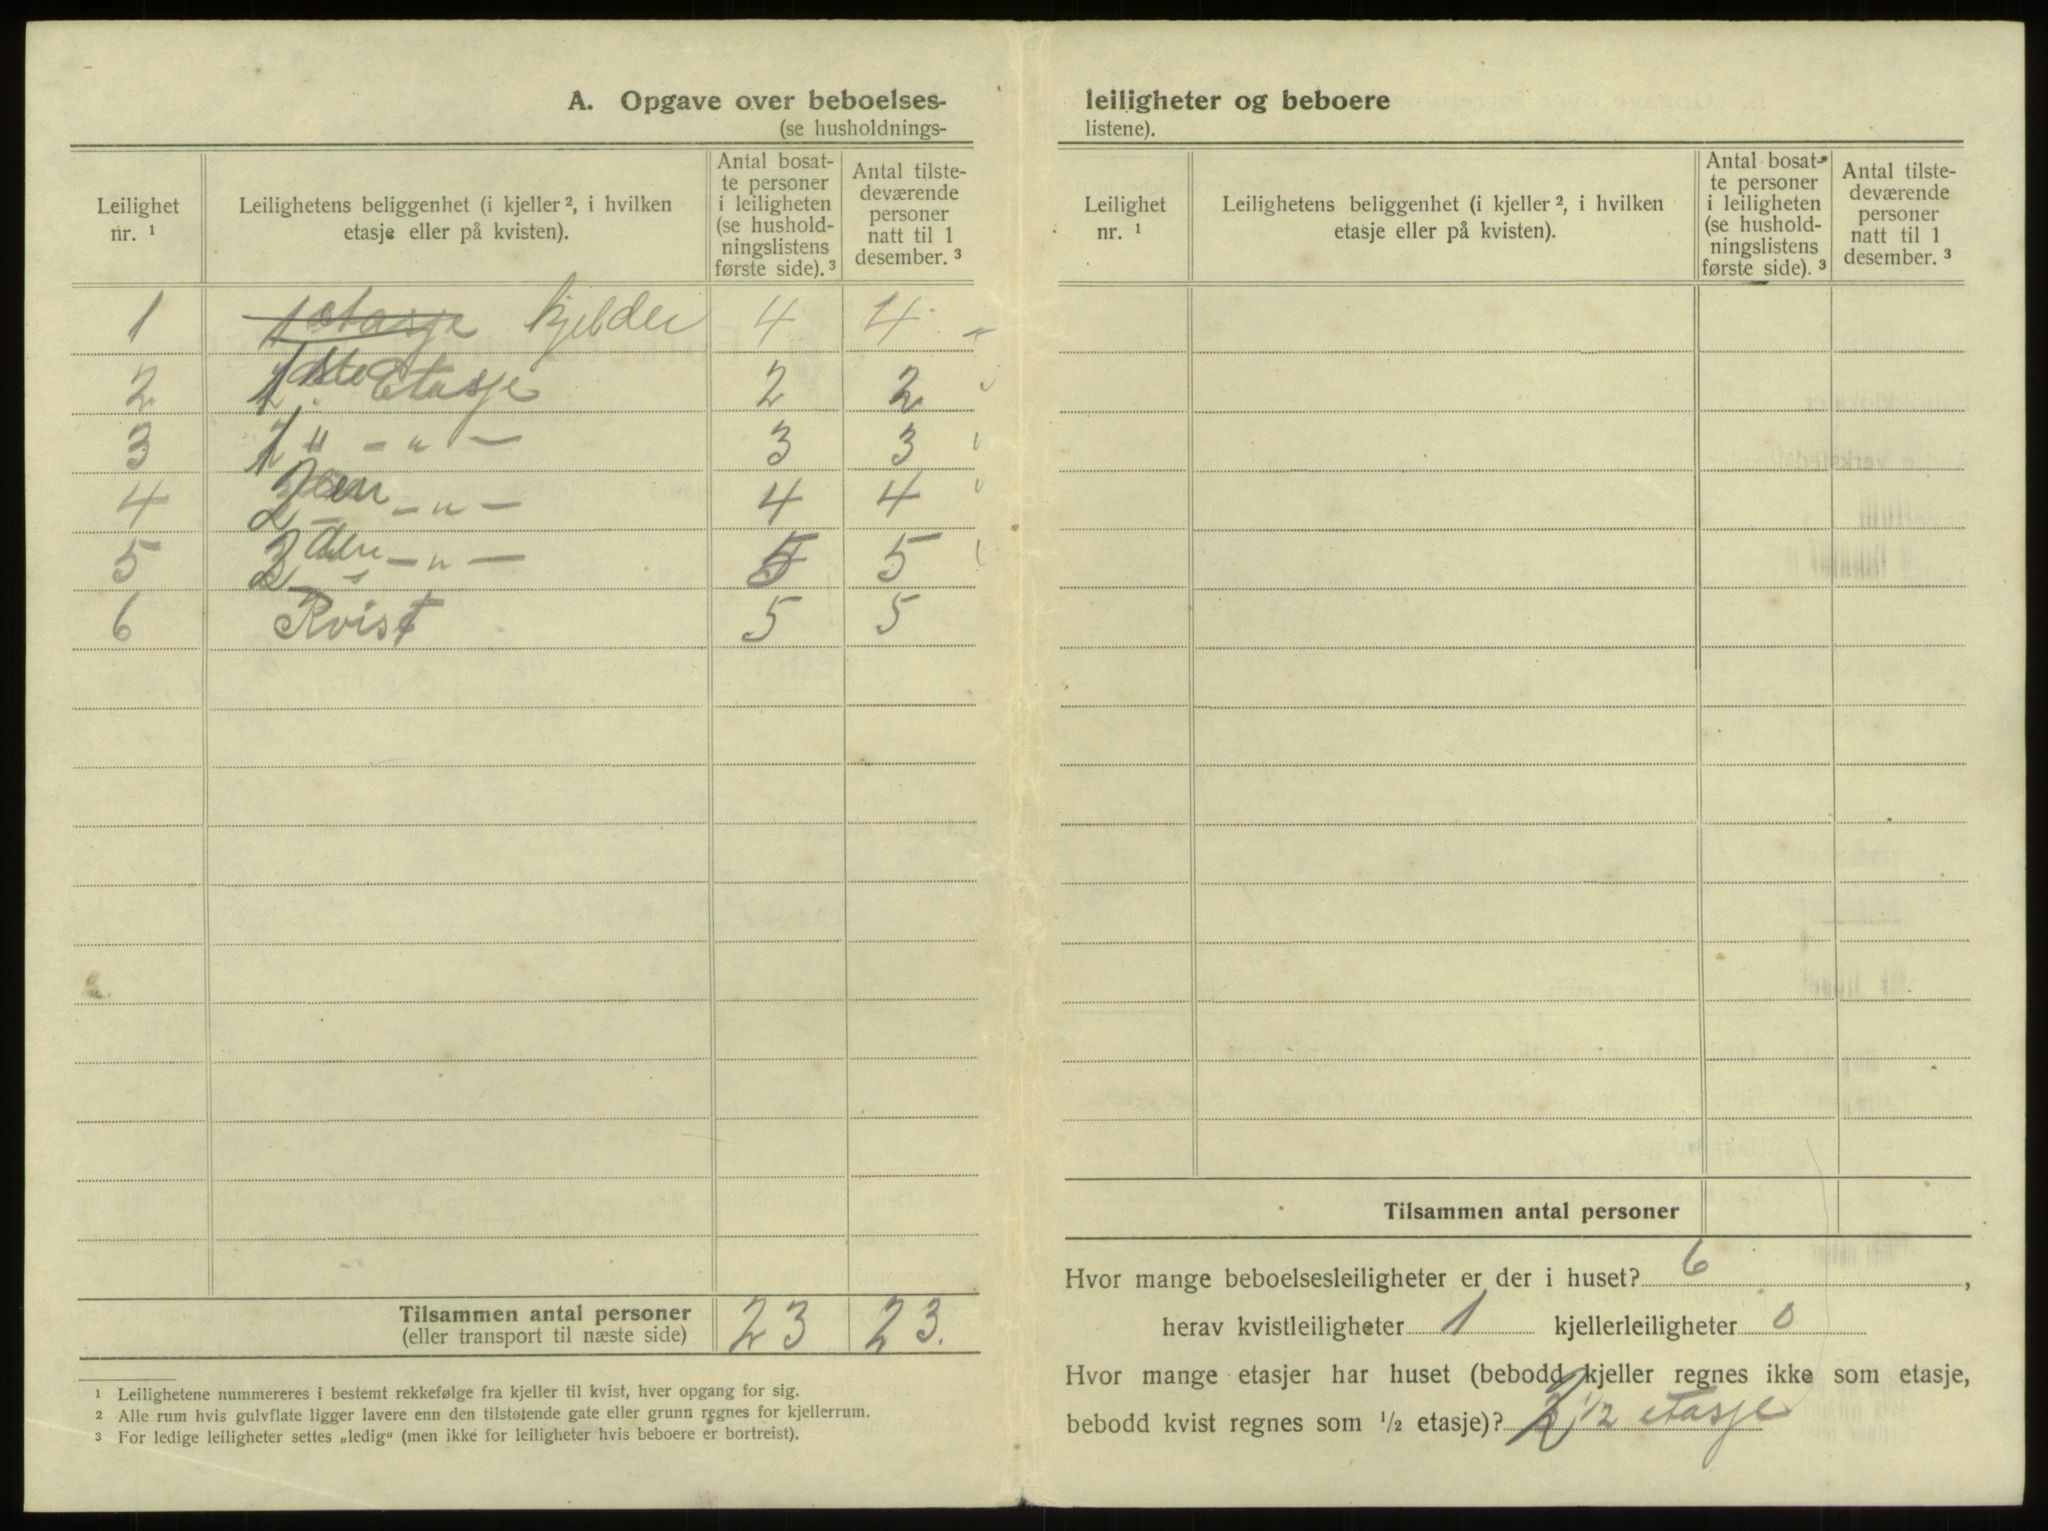 A. Opgave over beboelses-
(se husholdnings-
Leilighet nr. ¹
Leilighetens beliggenhet (i kjeller ², i hvilken etasje eller på kvisten).
Antal bosat-te personer i leiligheten (se hushold-ningslistens første side). ³
Antal tilste-deværende personer natt til 1 desember. ³
1 1 etasje kjelder 4 4
2 1ste Etasje 2 2
3 1 " - " - 3 3
4 2den - " - 4 4
5 2den - " - 5 5
6 Kvist 5 5
Tilsammen antal personer 23 23.
(eller transport til næste side)
¹ Leilighetene nummereres i bestemt rekkefølge fra kjeller til kvist, hver opgang for sig.
² Alle rum hvis gulvflate ligger lavere enn den tilstøtende gate eller grunn regnes for kjellerrum.
³ For ledige leiligheter settes „ledig“ (men ikke for leiligheter hvis beboere er bortreist).
leiligheter og beboere
listene).
Leilighet nr. ¹
Leilighetens beliggenhet (i kjeller ², i hvilken etasje eller på kvisten).
Antal bosat-te personer i leiligheten (se hushold-ningslistens første side). ³
Antal tilste-deværende personer natt til 1 desember. ³
Tilsammen antal personer
Hvor mange beboelsesleiligheter er der i huset? 6,
herav kvistleiligheter 1 kjellerleiligheter 0
Hvor mange etasjer har huset (bebodd kjeller regnes ikke som etasje,
bebodd kvist regnes som ½ etasje)? 2 1/2 etasje